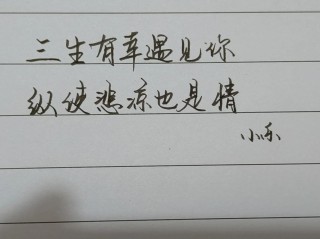 三生有幸遇见你
纵使悲凉也是情
小乐